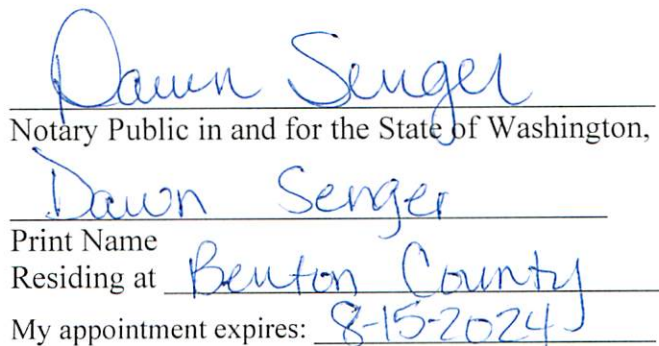 Dawn Senger
Notary Public in and for the State of Washington,
Dawn Senger
Print Name
Residing at Benton County
My appointment expires: 8-15-2024